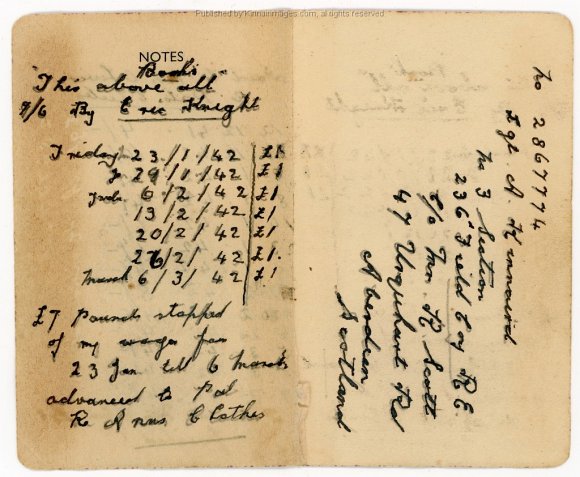 Published by Kinnunimages.com, all rights reserved
NOTES
Books
"This above all"
7/6 By Eric Knight
Friday 23/1/42 £1.
29/1/42 £1
Feb. 6/2/42 £1
13/2/42 £1
20/2/42 £1.
27/2/42 £1.
March 6/3/42 £1
£7 Pounds stopped
of my wages from
23 Jan till 6 March
advanced to Pal
R Clothes
No 2867774
A. Kinnaird
No 3 Section
236 Field Coy R.E.
c/o Mrs. R. Scott
47 Urquhart Rd
Aberdeen
Scotland